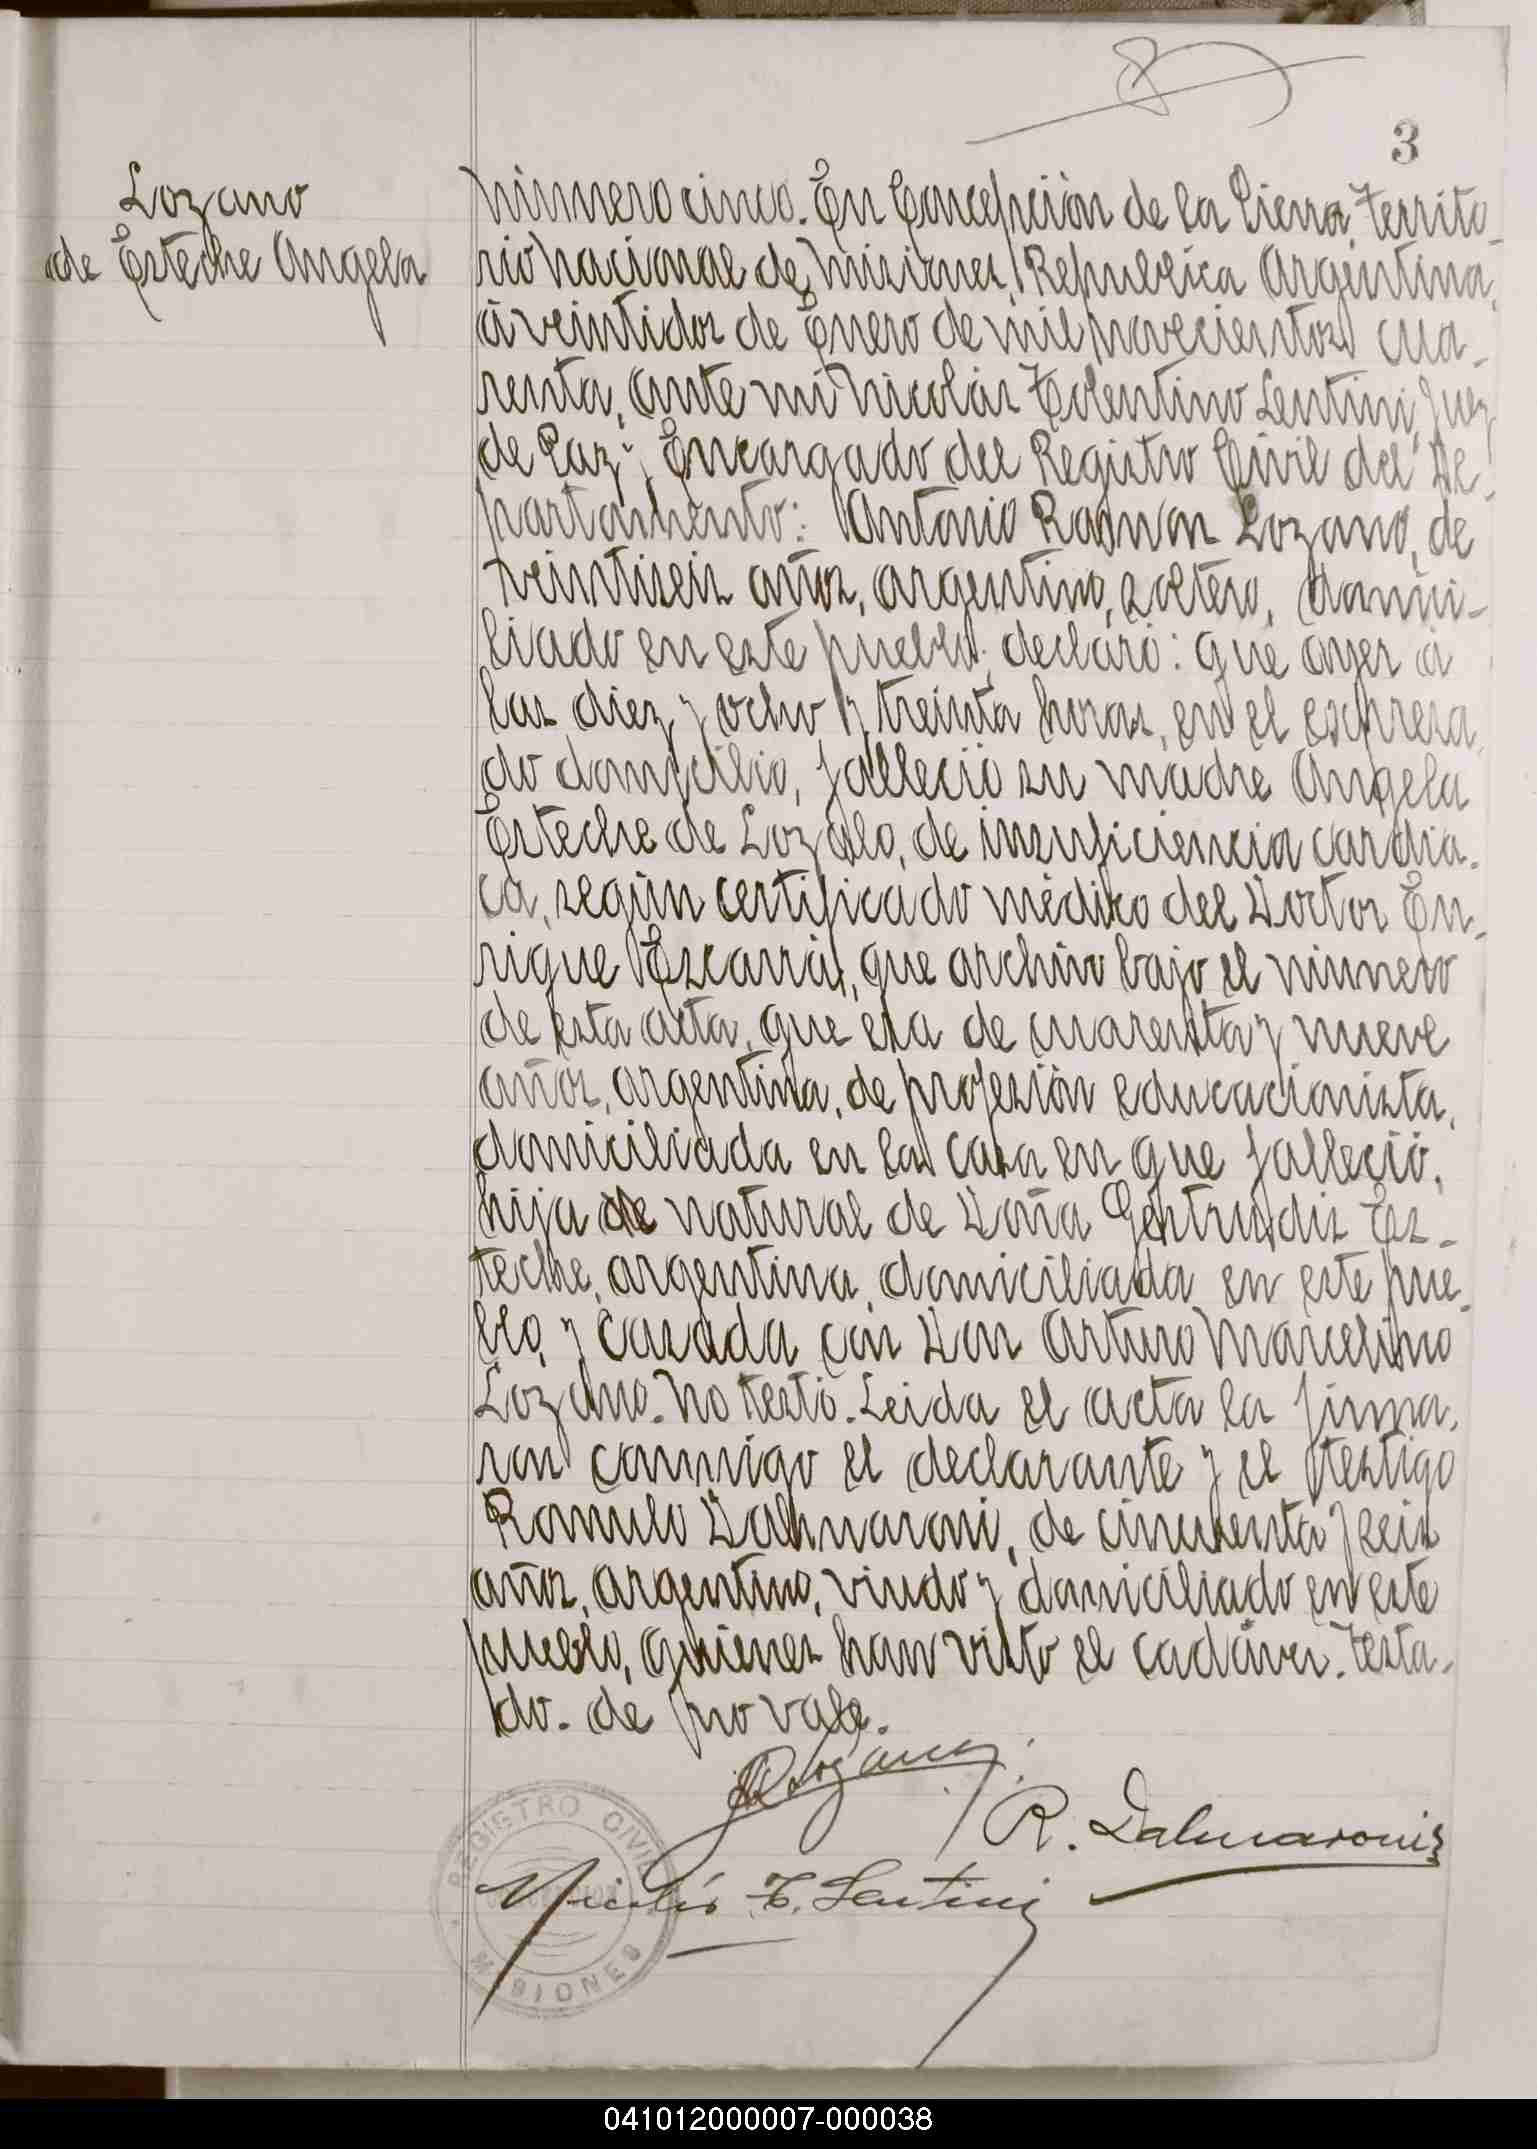 3
Lozano
de Esteche Angela
Número cinco. En Concepción de la Sierra, Territo-
rio Nacional de Misiones, Republica Argentina,
á veintidos de Enero de mil novecientos cua-
renta, ante mi Nicolás Tolentino Lentini, Juez
de Paz y Encargado del Registro Civil del De-
partamento: Antonio Ramon Lozano, de
veintiseis años, argentino, soltero, domici-
liado en este pueblo, declaró: que ayer á
las diez y ocho y treinta horas, en el expresa-
do domicilio, falleció su madre Angela
Esteche de Lozano, de insuficiencia cardia-
ca, según certificado médico del Doctor En-
rique Escarrá, que archivo bajo el número
de esta acta, que era de cuarenta y nueve
años, argentina, de profesión educacionista,
domiciliada en la casa en que falleció,
hija de natural de Doña Gertrudis Es-
teche, argentina, domiciliada en este pue-
blo, y casada con Don Arturo Marcelino
Lozano. No testó. Leida el acta la firma-
ron conmigo el declarante y el testigo
Romulo Dalmaroni, de cincuenta y seis
años, argentino, viudo y domiciliado en este
pueblo, quienes han visto el cadáver. Testa-
do. de no vale.
Lozano
R. Dalmaroni
Nicolás T. Lentini
REGISTRO CIVIL
MISIONES
041012000007-000038